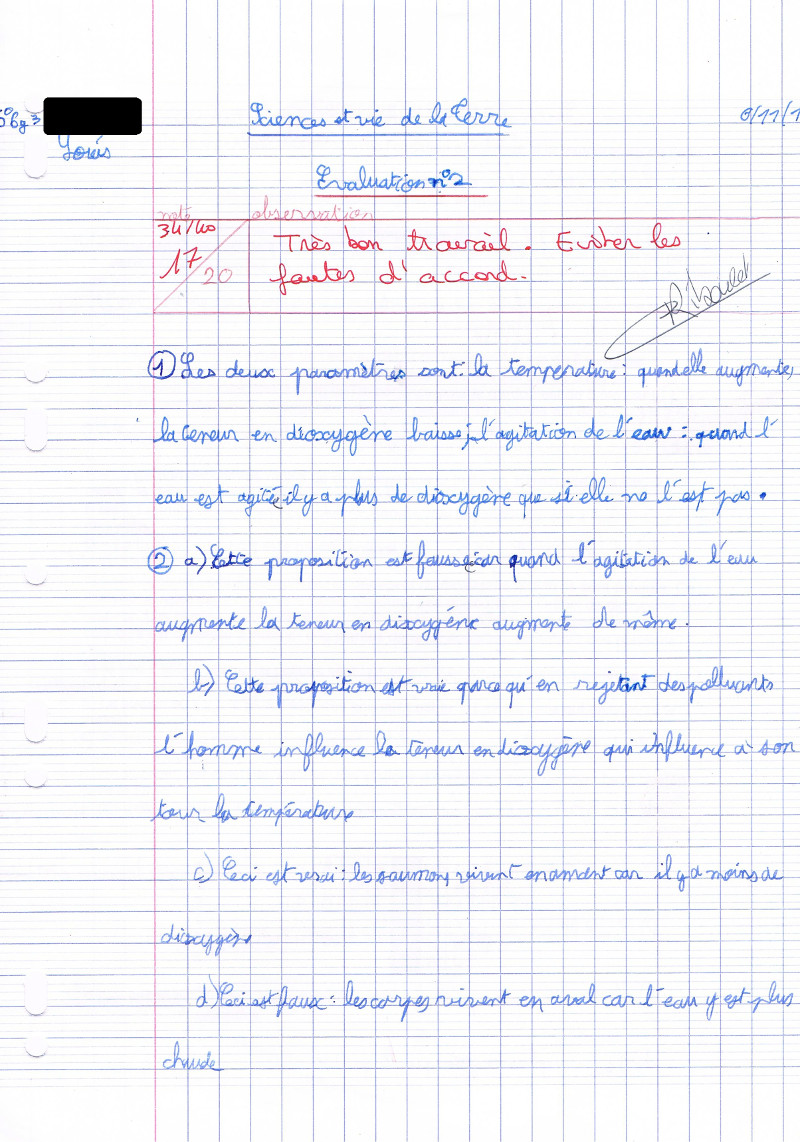 Sciences et vie de la Terre
6/11/1
Louis
Evaluation n°2
note observation
34/40
17/20
Très bon travail. Eviter les
fautes d'accord.
① Les deux paramètres sont: la température: quand elle augmente,
la teneur en dioxygène baisse; l'agitation de l'eau: quand l'
eau est agitée il y a plus de dioxygène que si elle ne l'est pas.
② a) Cette proposition est fausse car quand l'agitation de l'eau
augmente la teneur en dioxygéne augmente de même.
b) Cette proposition est vraie parce qu'en rejetant des polluants
l'homme influence la teneur en dioxygène qui influence à son
tour la température
c) Ceci est vrai: les saumons vivent en amont car il y a moins de
dioxygène
d) Ceci est faux: les carpes vivent en aval car l'eau y est plus
chaude